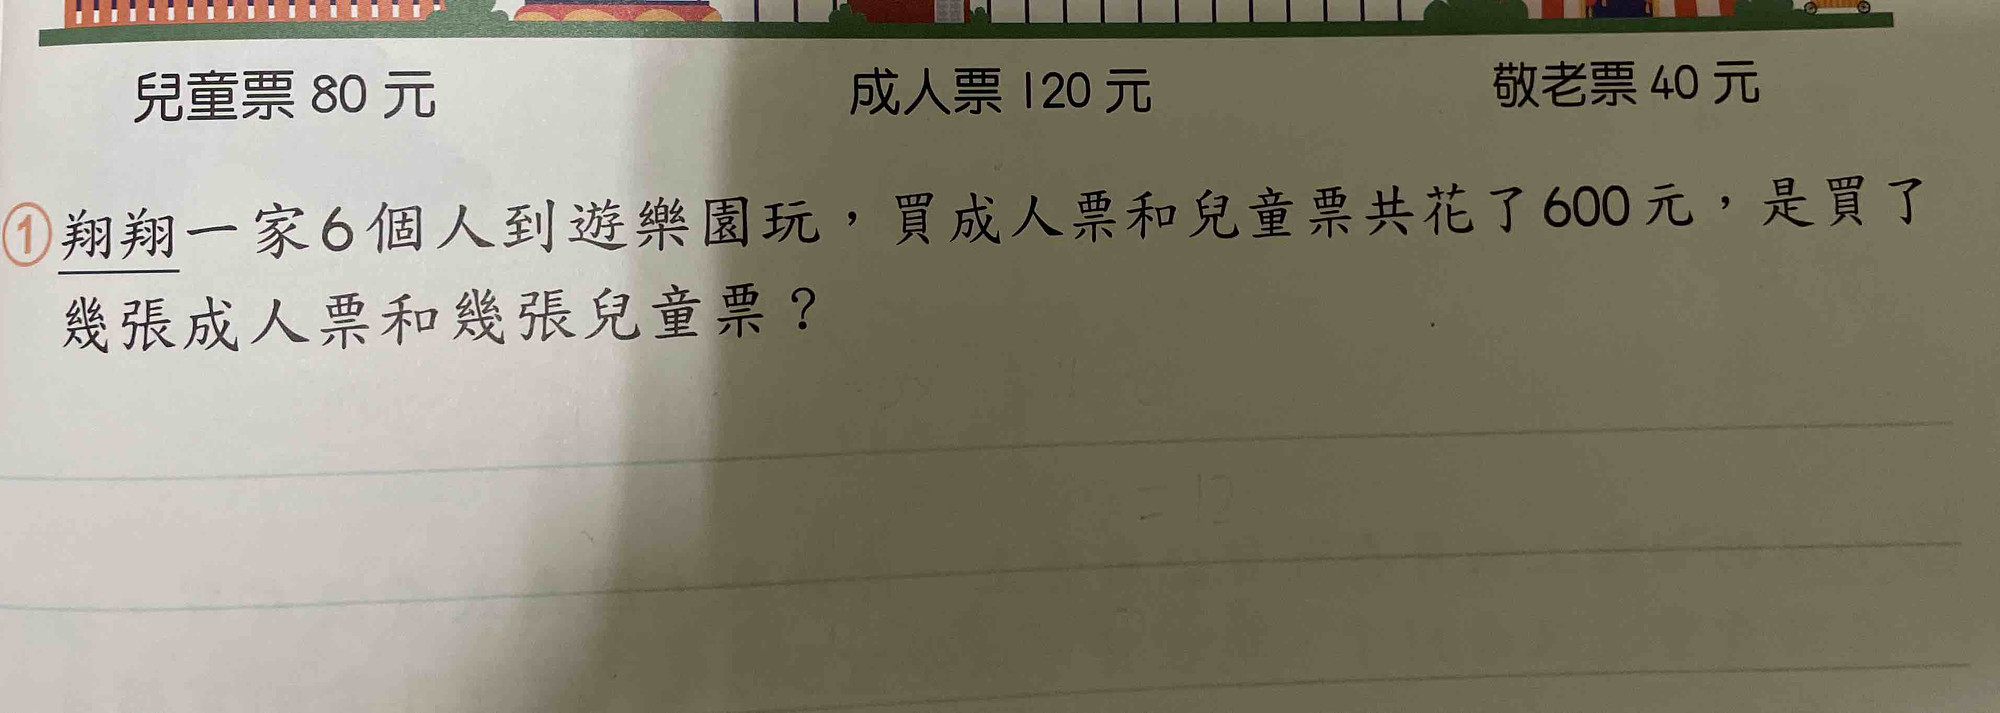 兒童票 80 元 成人票 120 元 敬老票 40 元
① 翔翔一家6個人到遊樂園玩，買成人票和兒童票共花了600元，是買了
幾張成人票和幾張兒童票？
= 12